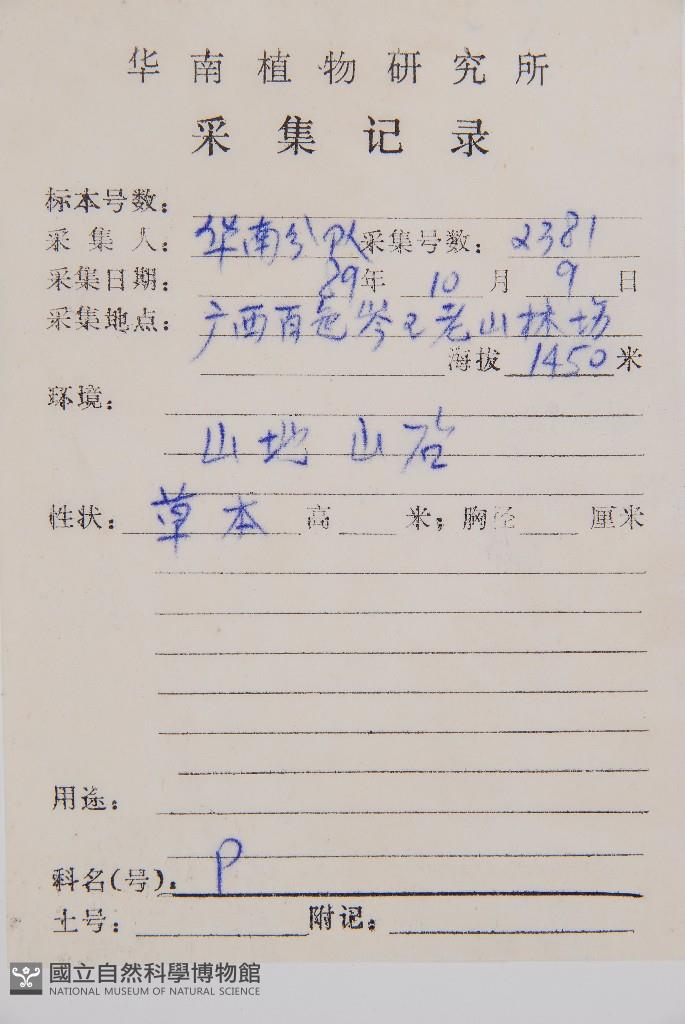 华南植物研究所
采集记录
标本号数：
采集人：华南分队 采集号数：2381
采集日期：89年 10 月 9 日
采集地点：广西百色岑王老山林场
海拔 1450 米
环境：
山地 山
性状：草本 高 米；胸径 厘米
用途：
科名(号)：P
土号： 附记：
國立自然科學博物館
NATIONAL MUSEUM OF NATURAL SCIENCE